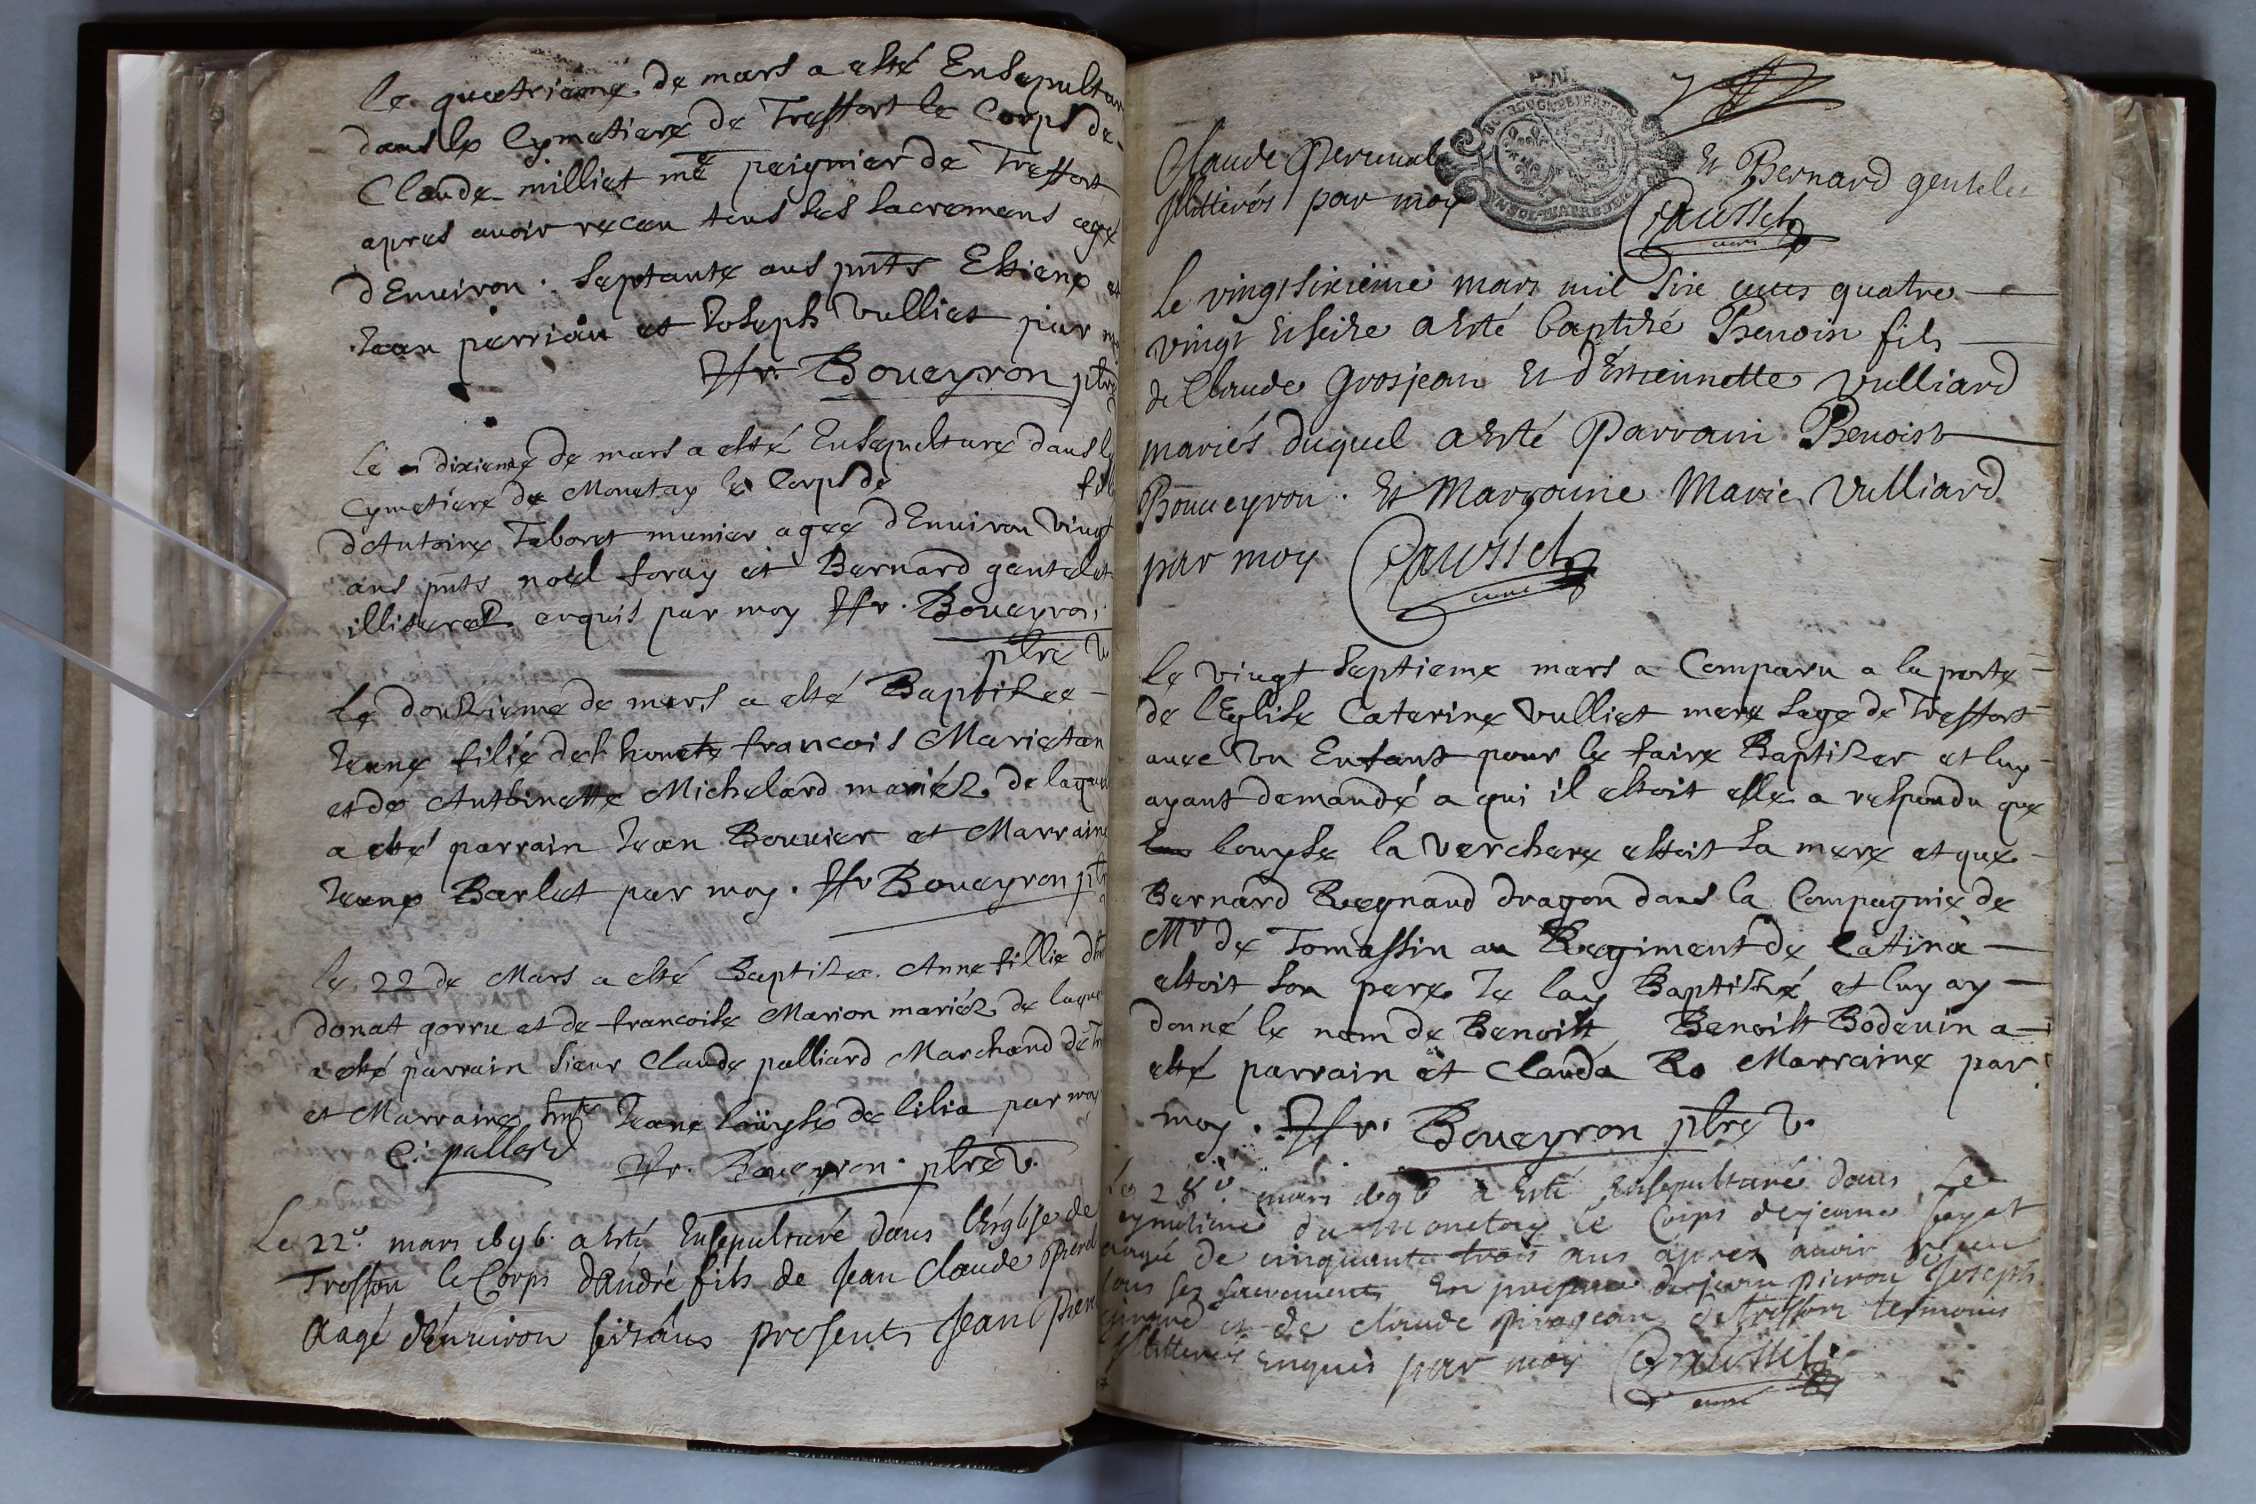 Le quatrieme de mars a esté Ensepultur
dans le Cymetiere de Treffort le Corps de
Claude milliet me peignier de Treffort
apres avoir receu tous ses sacremens agé
d'Environ septante ans pnts Estiene et
Jean perrian et Joseph Vulliet par m
Boueyron ptre
Le dixieme de mars a esté Ensepulture dans le
Cymetiere de Monetay le Corps de fil
d'Antoine Taboret munier agee d'Environ vingt
ans pnts noel foray et Bernard gentelet
illiteres enquis par moy Boueyron
ptre v
Le douzieme de mars a esté Baptisee
Jeane filie de francois Marietan
et de Anthoinette Michelard mariéz de laquel
a esté parrain Jean Bouvier et Marraine
Jeane Barlet par moy. Boueyron ptr
Le 22 de Mars a esté Baptisee Anne fillie d'h
donat gorru et de francoise Marion mariéz de laque
a esté parrain sieur Claude palliard Marchand de Tr
et Marraine hnte Jeane Louyse de lilia par moy
C. pallard Boueyron ptre v.
Le 22e mars 1696 a esté Ensepulturé dans l'Eglise de
Treffort le Corps d'André fils de Jean Claude
aagé d'énviron six ans presents Jean
Claude Et Bernard gentelet
Illitterés par moy Caussel
curé
Le vingt sixieme mars mil six cens quatre
vingt et seize a esté baptizé Benoin fils
de Claude Grosjean Et d'Estiennette Vulliard
mariés duquel a esté Parrain Benoist
Boueyron Et Marraine Marie Vulliard
par moy Caussel
curé
Le vingt septieme mars a Comparu a la porte
de l'Eglise Caterine Vulliet mere sage de Treffort
avec Un Enfant pour le faire Baptizer et luy
ayant demandé a qui il estoit elle a respondu que
Louyse la verchere estoit sa mere et que
Bernard Regnaud dragon dans la Compagnie de
Mr de Tomassin au Regiment de Catina
estoit son pere Je lay Baptizé et luy ay
donné le nom de Benoist Benoist Bodevin a
esté parrain et Clauda Ro Marraine par
moy. Boueyron ptre v.
Le mars 1696 a esté Ensepulturé dans Le
cymetiere du Monetay le Corps de
aagé de cinquante trois ans apres avoir receu
tous ses sacrements En presence de jean pieron Joseph
et de claude de Treffort temoins
Illitterés enquis par moy Caussel
curé